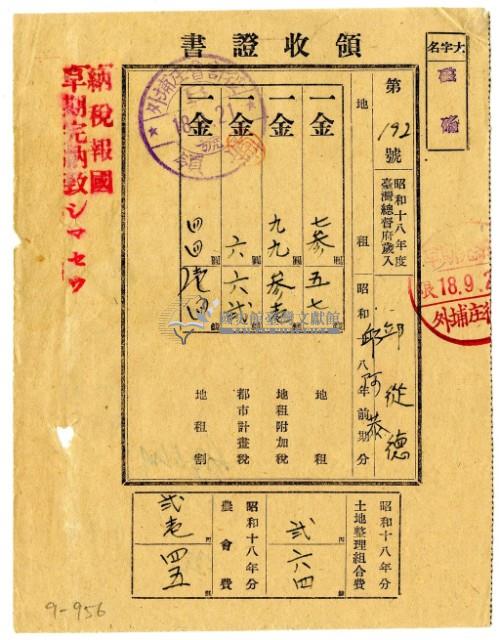 領收證書
大字名
第192號
昭和十八年度
臺灣總督府歲入
地租 昭和十八年前期分
邱從德
邱阿恭
一金 七参 圓 五七 地租
一金 九九 圓 参壱 地租附加稅
一金 六 圓 六弐 都市計畫稅
一金 四四 圓 地租割
昭和十八年分
土地整理組合費
弐 円 六四 錢
昭和十八年分
農會費
弐壱 円 四五 錢
納稅報國
早期完納致シマセウ
外埔庄
18.9.2
外埔庄
國史館臺灣文獻館
9-956